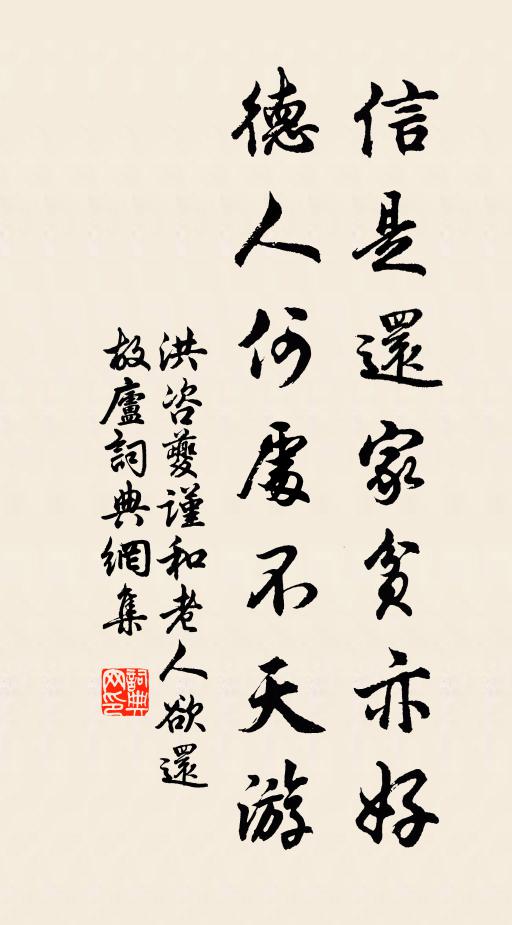 信是還家貧亦好
德人何處不天游
洪咨夔謹和老人欲還
故廬詞典網集
詞典網印